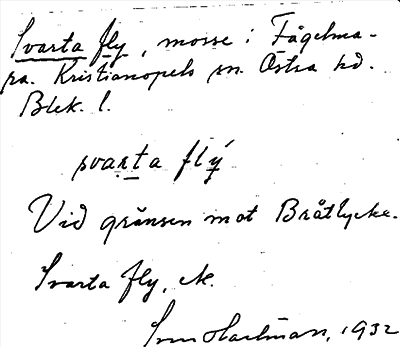 Svarta fly, mosse i Fågelma-
ra. Kristianopels sn. Östra hd.
Blek. l.
svaṛṭa flỵ́
Vid gränsen mot Bråtlycke.
Svarta fly, ek.
Sven Hartman, 1932